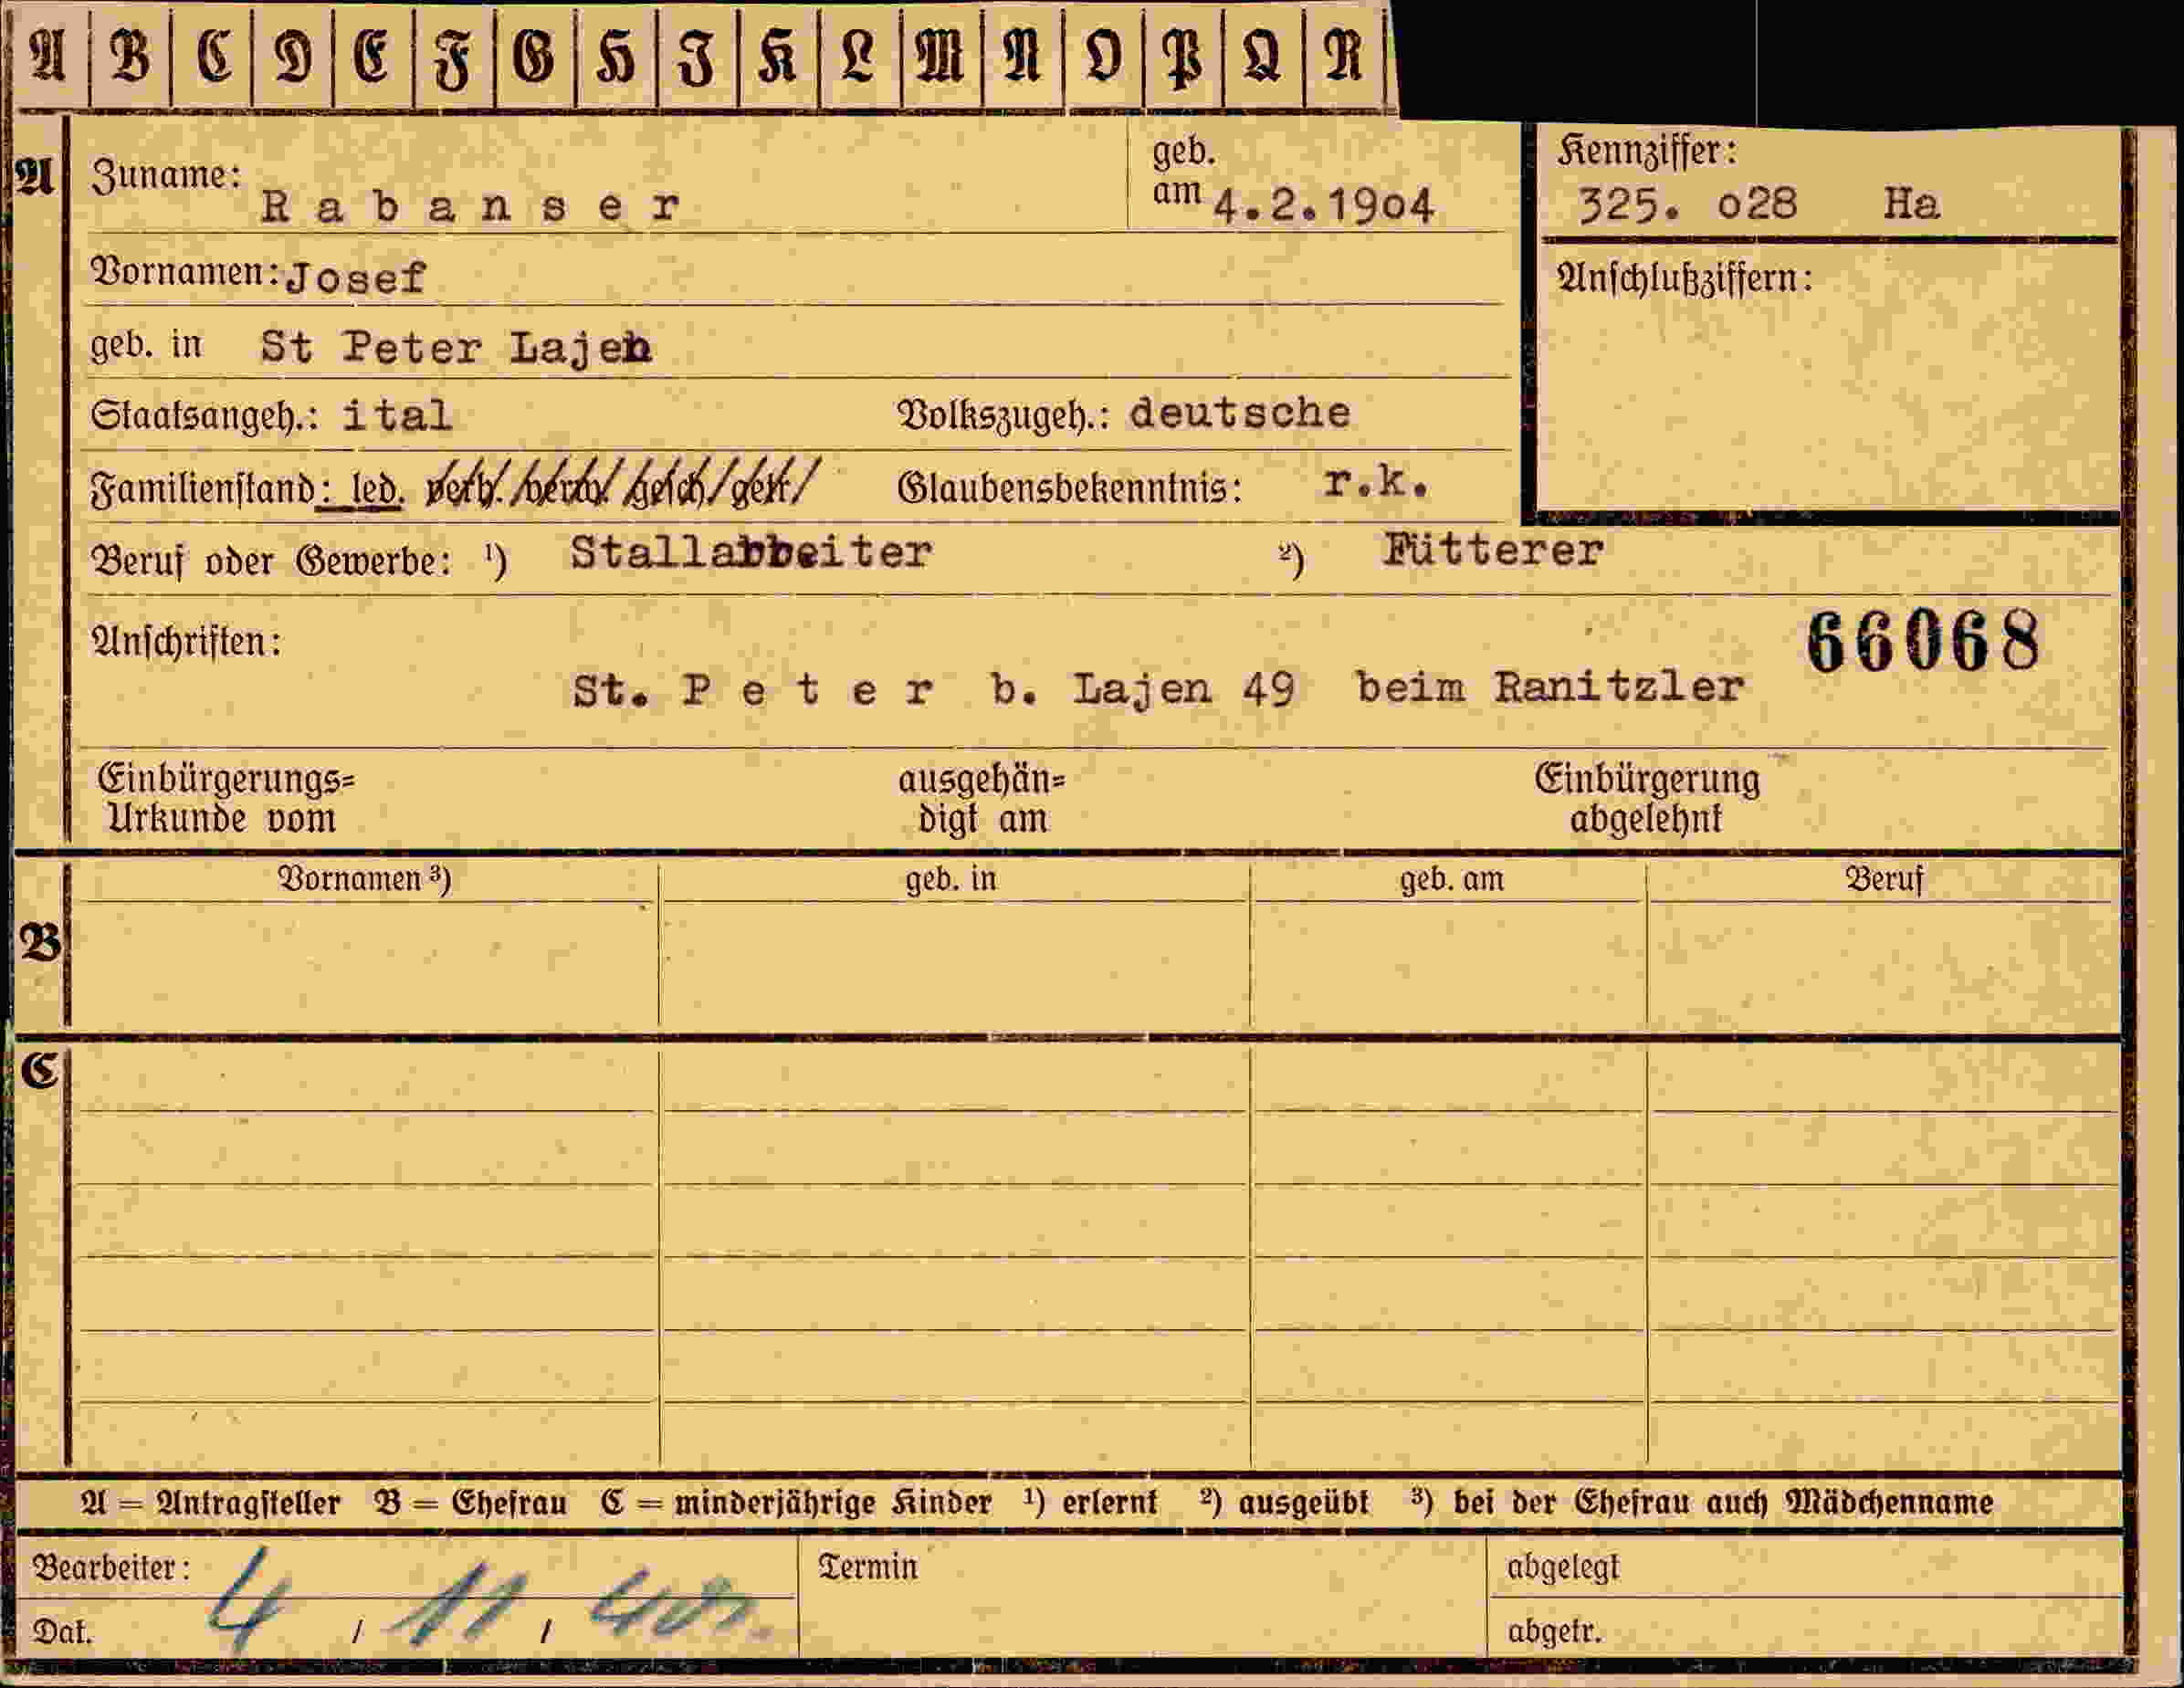 A B C D E F G H J K L M N O P Q R
A
Zuname: Rabanser
geb. am 4.2.1904
Kennziffer:
325. o28 Ha
Vornamen: Josef
Anschlußziffern:
geb. in St Peter Lajen
Staatsangeh.: ital Volkszugeh.: deutsche
Familienstand: led. verh. verw. gesch. getr. Glaubensbekenntnis: r.k.
Beruf oder Gewerbe: ¹) Stallarbeiter ²) Fütterer
Anschriften:
66068
St. Peter b. Lajen 49 beim Ranitzler
Einbürgerungs= ausgehän= Einbürgerung
Urkunde vom digt am abgelehnt
B
Vornamen ³) geb. in geb. am Beruf
C
A = Antragsteller B = Ehefrau C = minderjährige Kinder ¹) erlernt ²) ausgeübt ³) bei der Ehefrau auch Mädchenname
Bearbeiter: Termin abgelegt
Dat. 4 / 11 / abgetr.